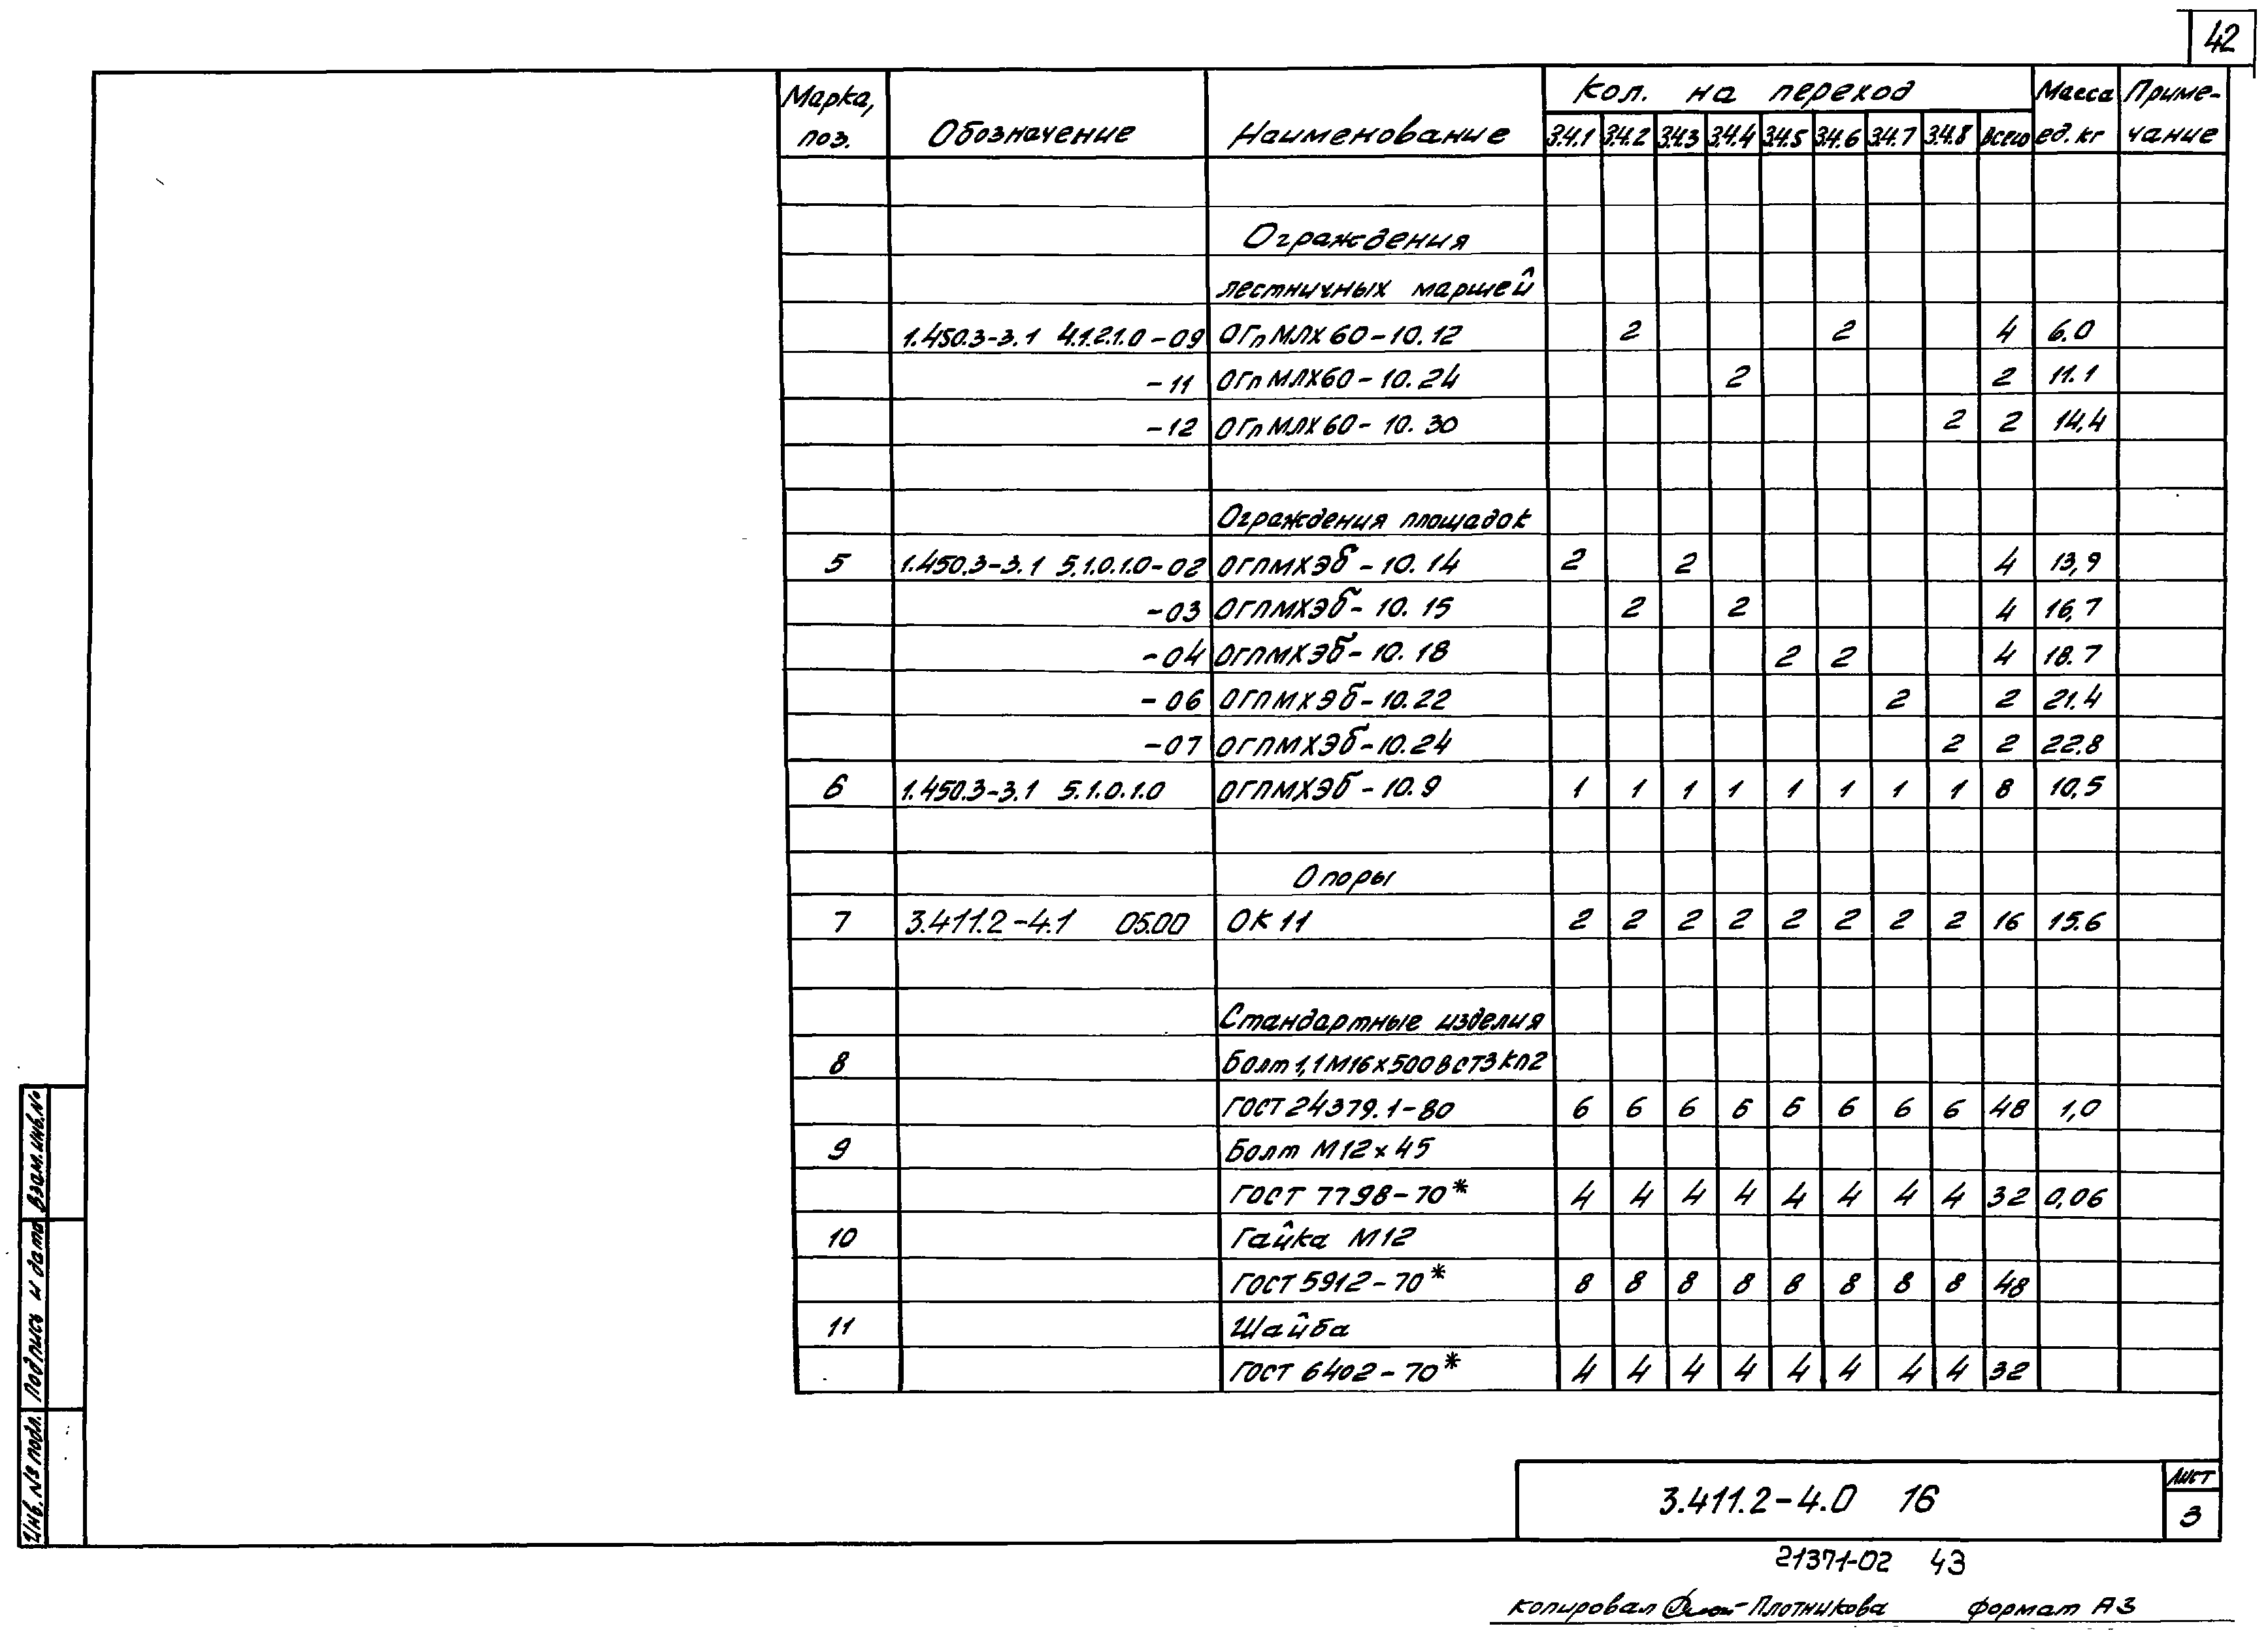 42
Марка, поз. Обозначение Наименование Кол. на переход Масса ед. кг Приме-чание
3.4.1 3.4.2 3.4.3 3.4.4 3.4.5 3.4.6 3.4.7 3.4.8 Всего
Ограждения
лестничных маршей
1.450.3-3.1 4.1.2.1.0-09 ОГпМЛХ60-10.12 2 2 4 6.0
-11 ОГпМЛХ60-10.24 2 2 11.1
-12 ОГпМЛХ60-10.30 2 2 14,4
Ограждения площадок
5 1.450.3-3.1 5.1.0.1.0-02 ОГПМХЭБ-10.14 2 2 4 13,9
-03 ОГПМХЭБ-10.15 2 2 4 16,7
-04 ОГПМХЭБ-10.18 2 2 4 18.7
-06 ОГПМХЭБ-10.22 2 2 21.4
-07 ОГПМХЭБ-10.24 2 2 22.8
6 1.450.3-3.1 5.1.0.1.0 ОГПМХЭБ-10.9 1 1 1 1 1 1 1 1 8 10,5
Опоры
7 3.411.2-4.1 05.00 ОК11 2 2 2 2 2 2 2 2 16 15.6
Стандартные изделия
8 Болт 1,1М16х500ВСТ3кп2
ГОСТ 24379.1-80 6 6 6 6 6 6 6 6 48 1,0
9 Болт М12х45
ГОСТ 7798-70* 4 4 4 4 4 4 4 4 32 0,06
10 Гайка М12
ГОСТ 5912-70* 8 8 8 8 8 8 8 8 48
11 Шайба
ГОСТ 6402-70* 4 4 4 4 4 4 4 4 32
Инв. № подл. Подпись и дата Взам. инв. №
3.411.2-4.0 16
Лист
3
21371-02 43
Копировал Плотникова Формат А3